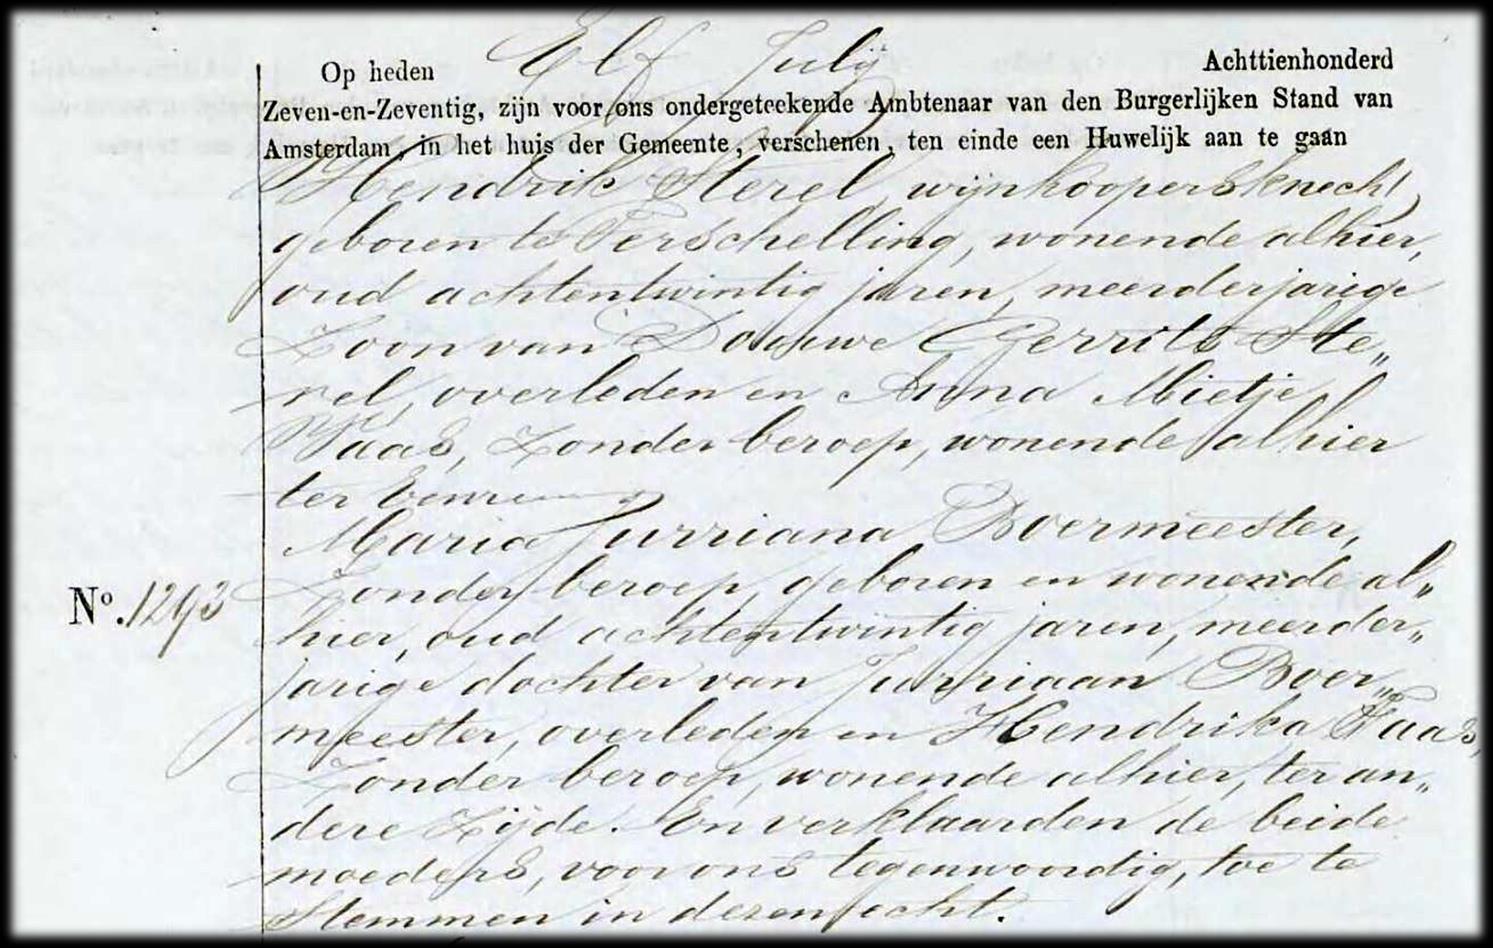 Op heden Elf Julij Achttienhonderd
Zeven-en-Zeventig, zijn voor ons ondergeteekende Ambtenaar van den Burgerlijken Stand van
Amsterdam, in het huis der Gemeente, verschenen, ten einde een Huwelijk aan te gaan
Hendrik Sterel, wijnkoopersknecht,
geboren te Terschelling, wonende alhier,
oud achtentwintig jaren, meerderjarige
Zoon van Douwe Gerrits Ste„
rel, overleden en Anna Mietje
Faas, Zonder beroep, wonende alhier
ter eenre
Maria Jurriana Boermeester,
Zonder beroep, geboren en wonende al„
hier, oud achtentwintig jaren, meerder„
jarige dochter van Jurriaan Boer„
meester, overleden en Hendrika Faas,
Zonder beroep, wonende alhier, ter an„
dere Zijde. En verklaarden de beide
moeders, voor ons tegenwoordig, toe te
Stemmen in dezen echt.
No. 1293